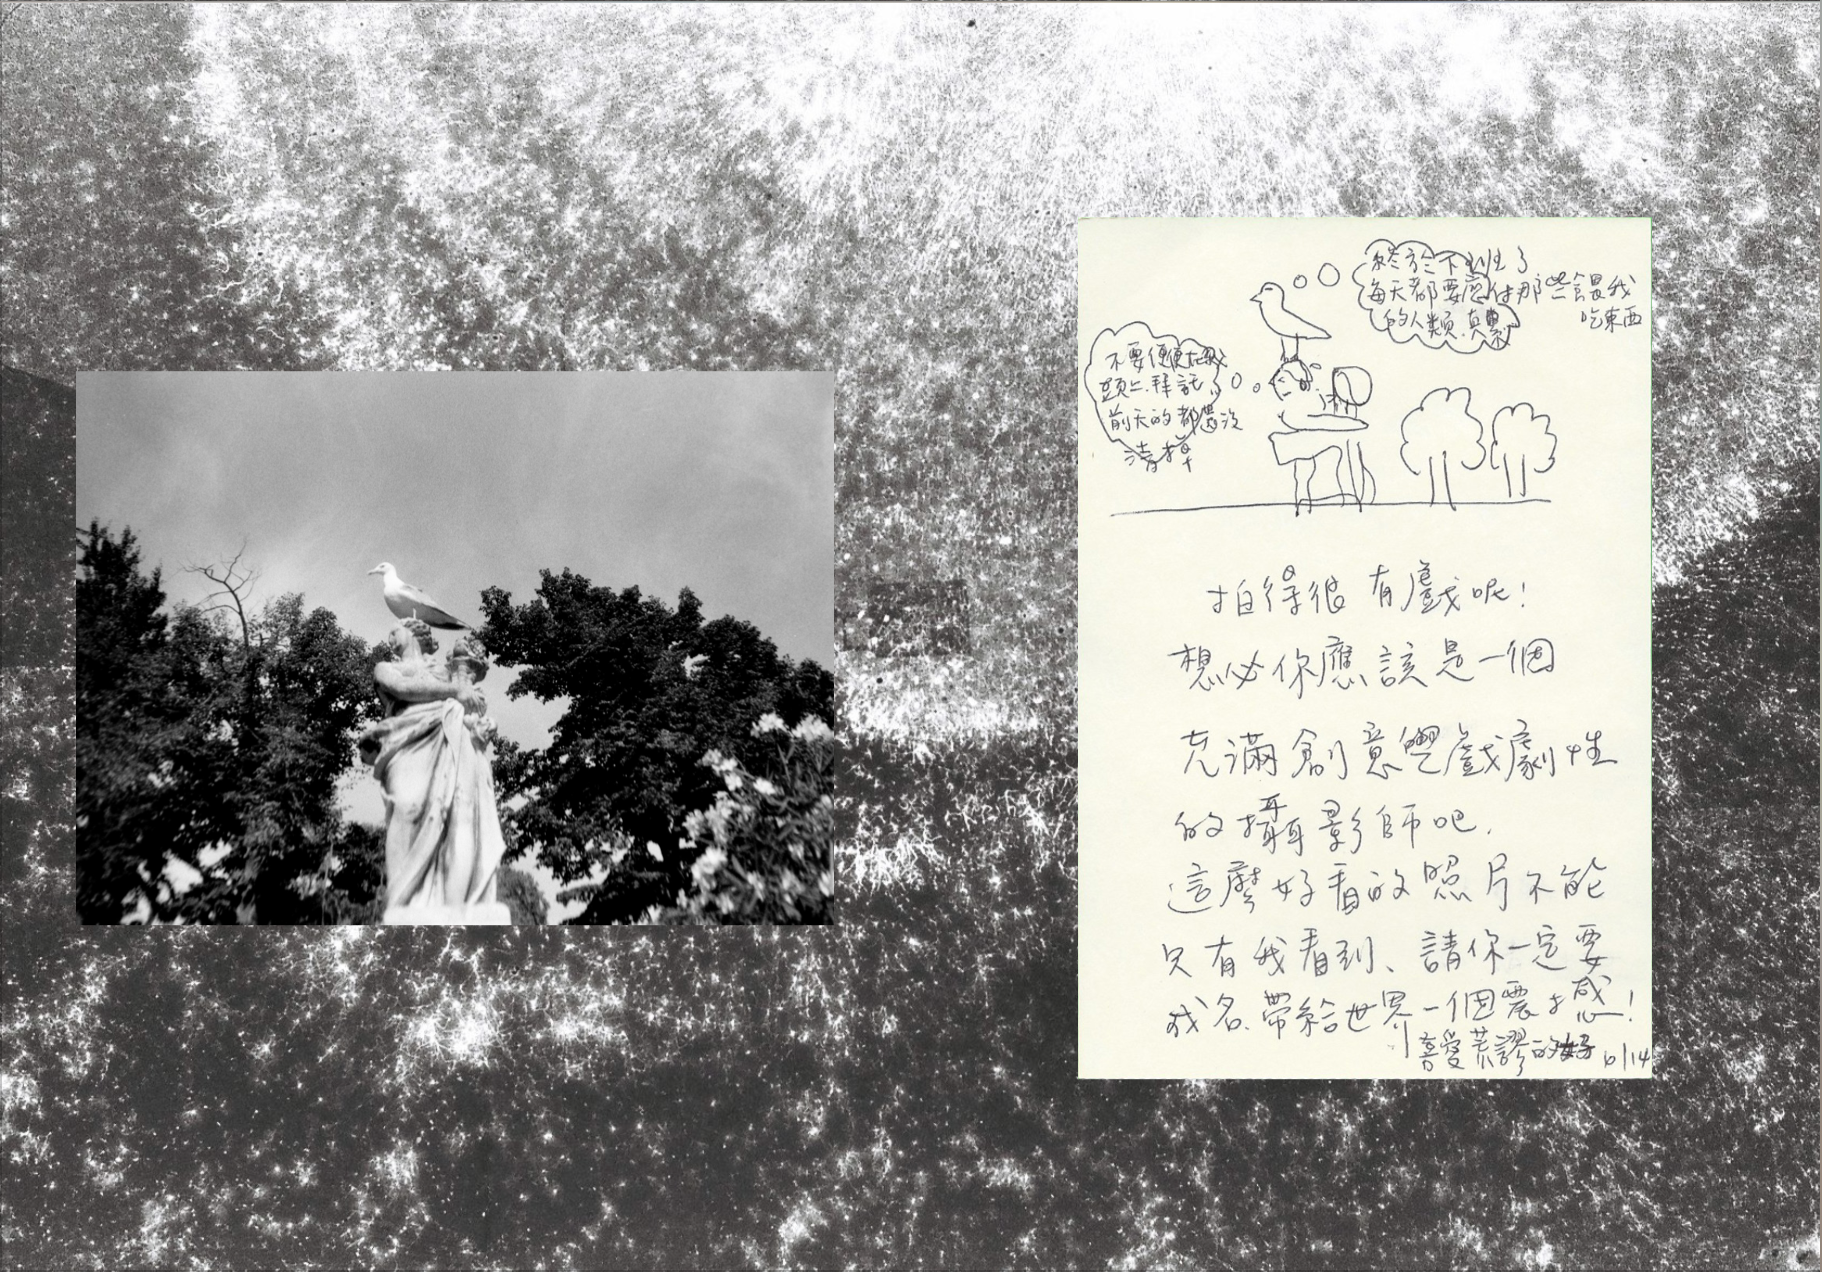 終於下班了
每天都要應付那些餵我
吃東西
的人類.真累
不要便便在我
頭上.拜託..
前天的都還沒
清掉
拍得很有戲呢!
想必你應該是一個
充滿創意與戲劇性
的攝影師吧.
這麼好看的照片不能
只有我看到、請你一定要
成名.帶給世界一個震撼!
喜愛荒謬的 6/14